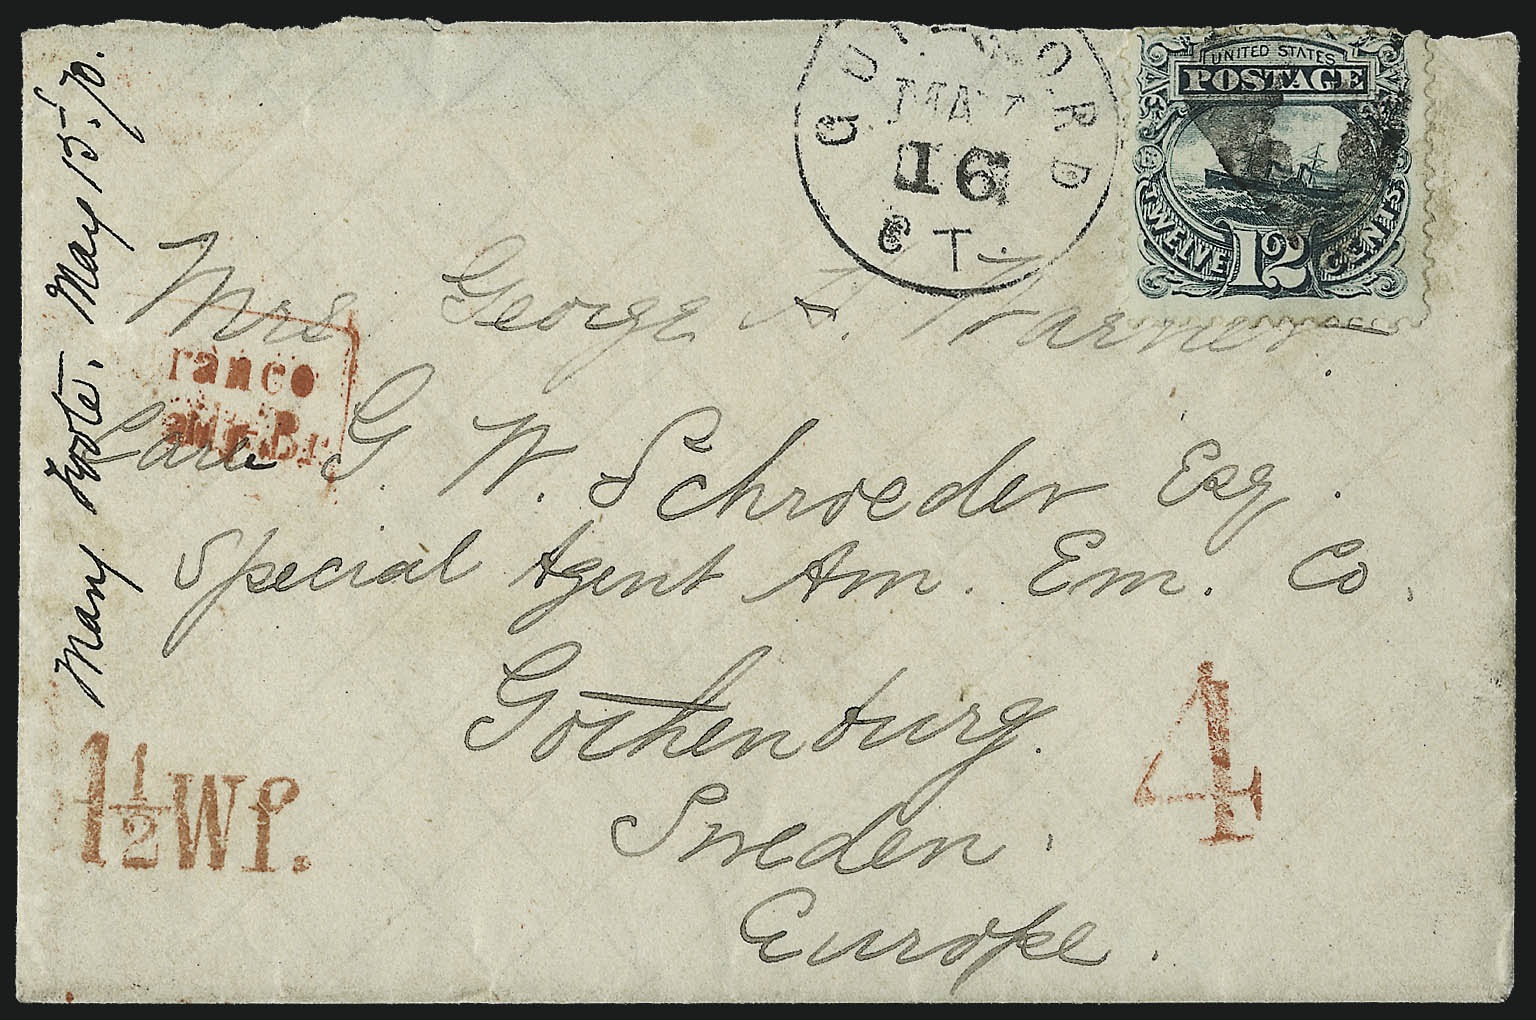 Mary Foote. May 15. / 70.
GUILFORD
MAY
16
CT.
UNITED STATES
POSTAGE
TWELVE 12 CENTS
Mrs George H. Warner
Care G. W. Schroeder Esq.
Special Agent Am. Em. Co.
Gothenburg.
Sweden.
Europe.
ranco
1½ Wf.
4